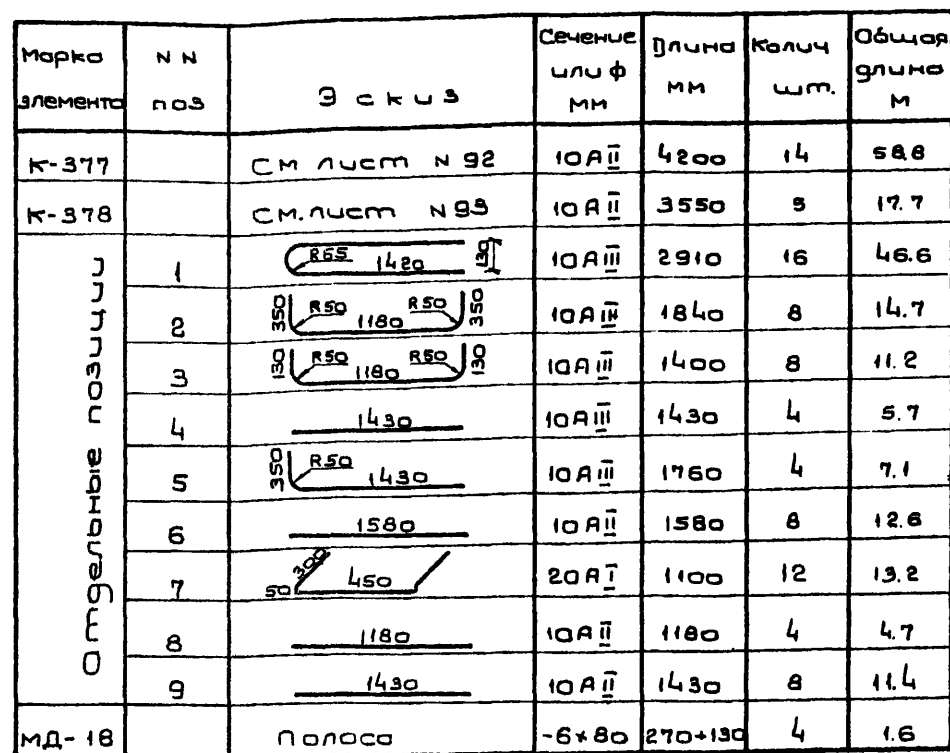 Марка элемента | N N поз | Эскиз | Сечение или ф мм | Длина мм | Колич шт. | Общая длина м
К-377 | | См лист N 92 | 10АII | 4200 | 14 | 58.8
К-378 | | См. лист N 93 | 10АII | 3550 | 5 | 17.7
Отдельные позиции
1 | R65 1420 130 | 10АIII | 2910 | 16 | 46.6
2 | 350 R50 1180 R50 350 | 10АIII | 1840 | 8 | 14.7
3 | 130 R50 1180 R50 130 | 10АIII | 1400 | 8 | 11.2
4 | 1430 | 10АIII | 1430 | 4 | 5.7
5 | 350 R50 1430 | 10АIII | 1760 | 4 | 7.1
6 | 1580 | 10АII | 1580 | 8 | 12.6
7 | 50 300 450 | 20АI | 1100 | 12 | 13.2
8 | 1180 | 10АII | 1180 | 4 | 4.7
9 | 1430 | 10АII | 1430 | 8 | 11.4
МД-18 | | Полоса | -6×80 | 270+130 | 4 | 1.6